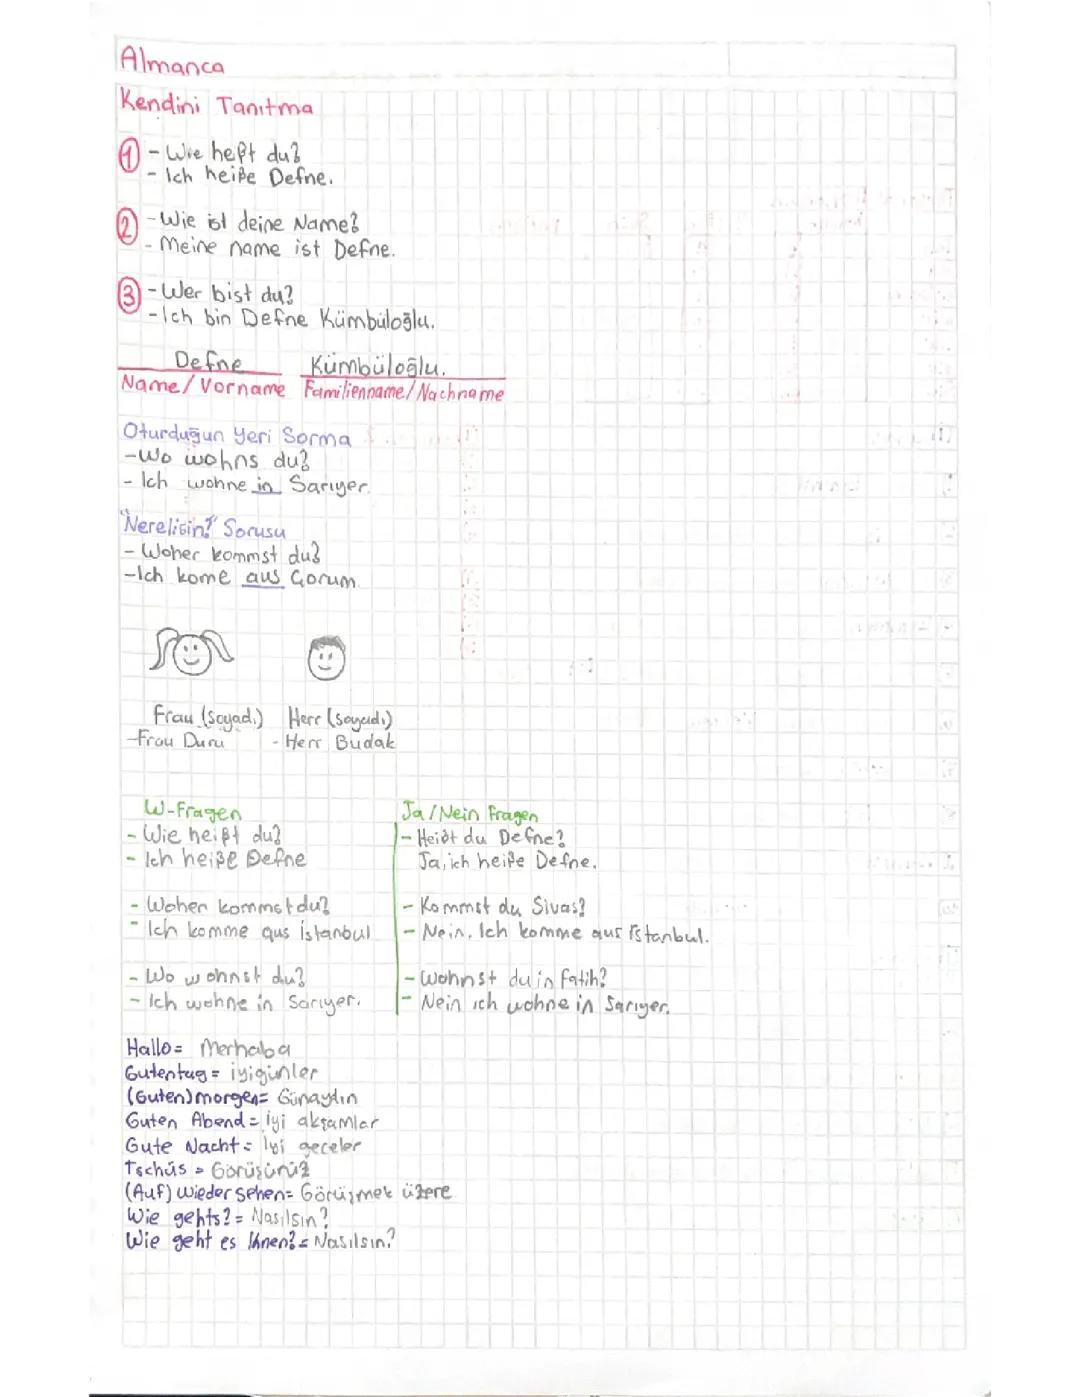 Almanca
Kendini Tanıtma
1 - Wie heßt du?
- Ich heiße Defne.
2 - Wie ist deine Name?
- Meine name ist Defne.
3 - Wer bist du?
- Ich bin Defne Kümbüloğlu.
Defne Kümbüloğlu.
Name/Vorname Familienname/Nachname
Oturduğun Yeri Sorma
- Wo wohns du?
- Ich wohne in Sarıyer.
"Nerelisin?" Sorusu
- Woher kommst du?
- Ich kome aus Çorum
Frau (Soyadı) Herr (Soyadı)
- Frau Duru - Herr Budak
W-Fragen Ja/Nein Fragen
- Wie heißt du? - Heißt du Defne?
- Ich heiße Defne Ja, ich heiße Defne.
- Woher kommst du? - Kommst du Sivas?
- Ich komme aus İstanbul - Nein. Ich komme aus İstanbul.
- Wo wohnst du? - Wohnst du in Fatih?
- Ich wohne in Sarıyer. - Nein ich wohne in Sarıyer.
Hallo = Merhaba
Gutentag = iyigünler
(Guten) morgen = Günaydın
Guten Abend = iyi akşamlar
Gute Nacht = İyi geceler
Tschüs = Görüşürüz
(Auf) wieder sehen = Görüşmek üzere
Wie gehts? = Nasılsın?
Wie geht es Ihnen? = Nasılsın?